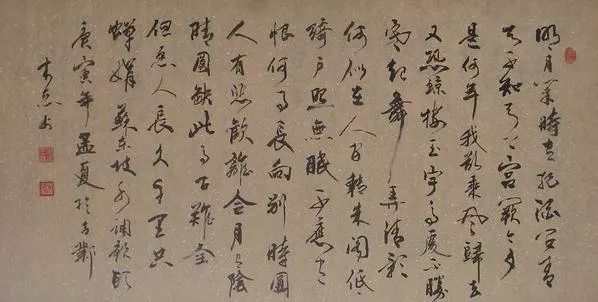 明月幾時有把酒問青
天不知天上宫闕今夕
是何年我欲乘風歸去
又恐瓊樓玉宇高處不勝
寒起舞弄清影
何似在人間轉朱閣低
綺户照無眠不應有
恨何事長向别時圓
人有悲歡離合月有陰
晴圓缺此事古難全
但願人長久千里共
嬋娟 蘇東坡水調歌頭
庚寅年孟夏於
书